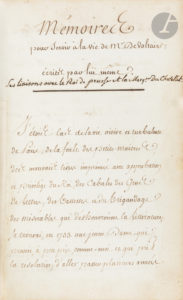 Mémoire
pour Servir à la vie de Mr. de Voltaire
écrits par lui même
Ses liaisons avec le Roi de prusse et la Marq. du Chatelet
J'étois las de la vie oisive et turbulente
de Paris, de la foule des petits maitres
des mauvais livres imprimés avec approbation
et privilège du Roi, des Cabales des Gens
de lettres, des bassesses et du brigandage
des misérables qui deshonoroient la littérature
je trouvai, en 1733 une jeune Dame qui
pensoit à peu près comme moi, et qui prit
la résolution d'aller passer plusieurs années